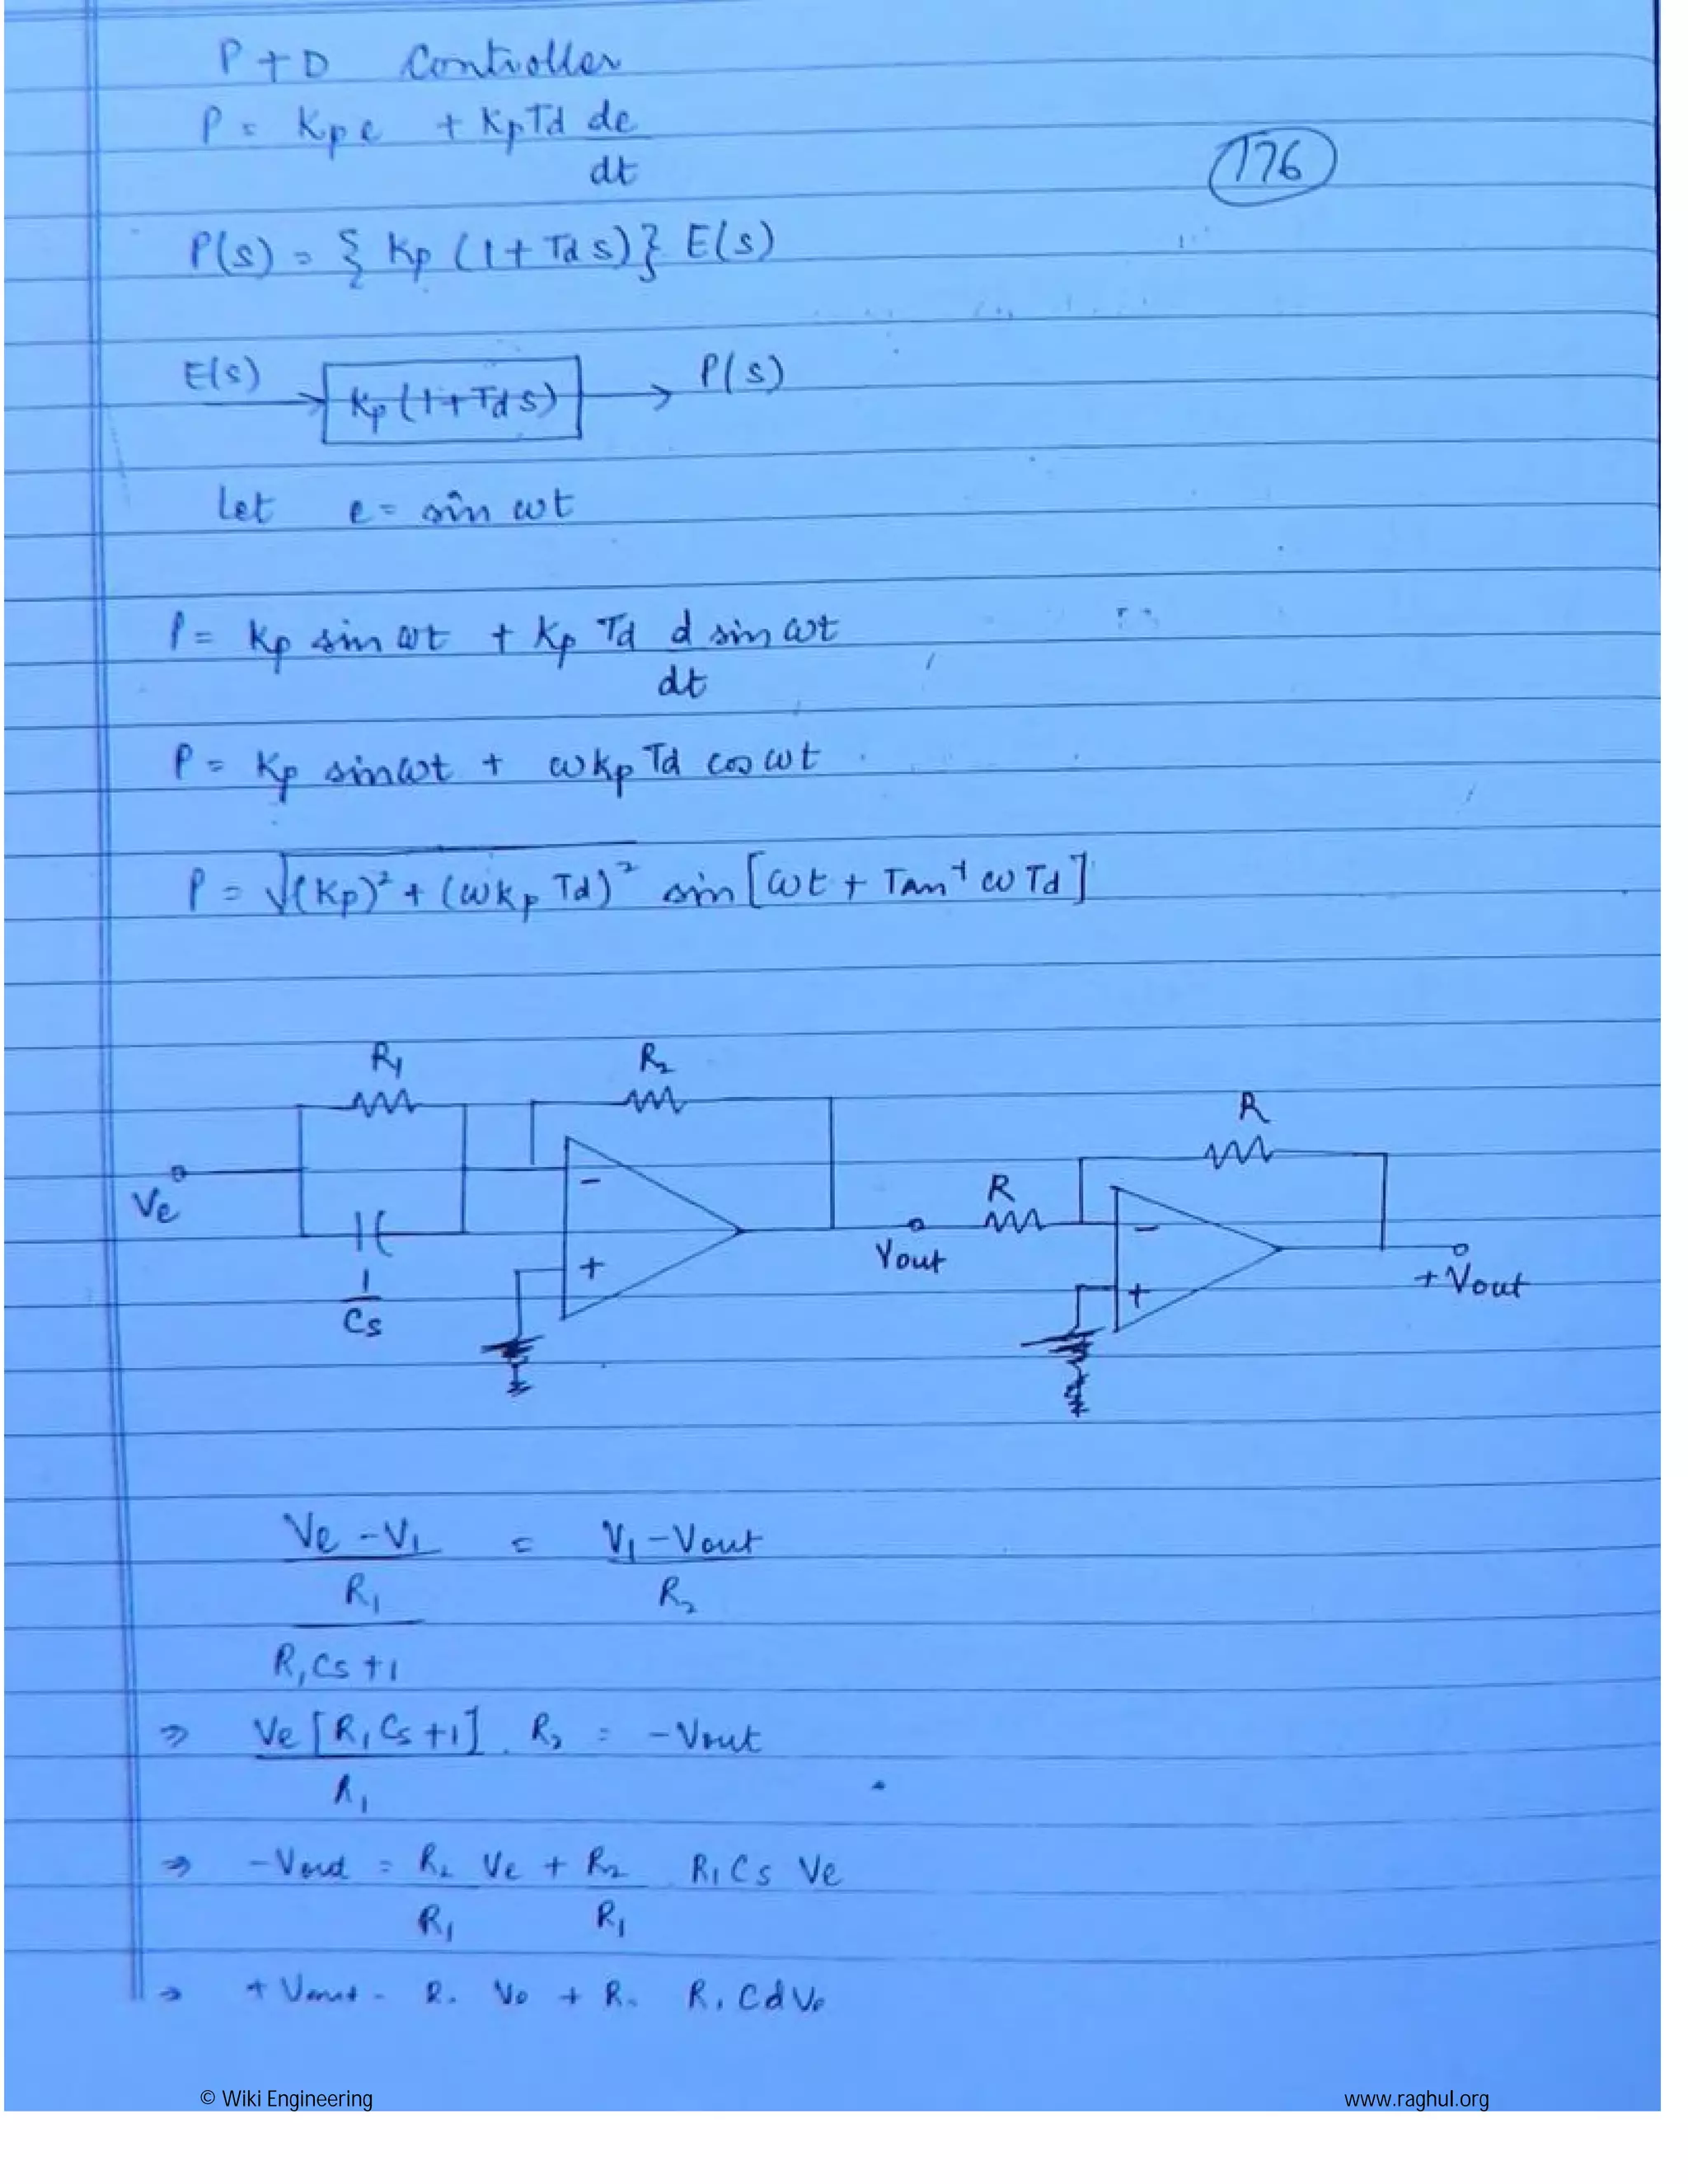 P+D Controller
P = Kp e + KpTd de
dt
176
P(s) = { Kp (1+Tds)} E(s)
E(s)
Kp(1+Tds)
P(s)
Let e = sin ωt
P = Kp sin ωt + Kp Td d sin ωt
dt
P = Kp sinωt + ωKp Td cos ωt
P = √(Kp)² + (ωKp Td)² sin [ωt + Tan⁻¹ ωTd]
R1
R2
R
Ve
-
+
1
Cs
Vout
R
-
+
+Vout
Ve - V1 = V1 - Vout
R1 R2
R1Cs+1
⇒ Ve [R1Cs+1] . R2 = -Vout
R1
⇒ -Vout = R2 Ve + R2 R1Cs Ve
R1 R1
⇒ +Vout = R2 Ve + R2 R1 C dVe
© Wiki Engineering
www.raghul.org